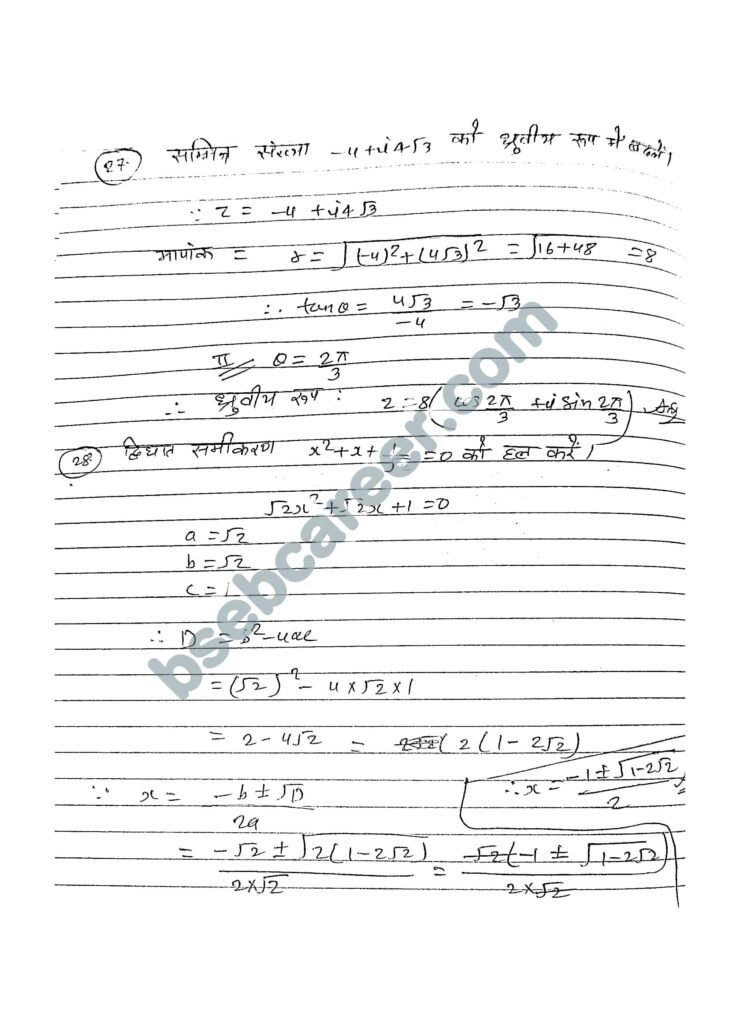 27. सम्मिश्र संख्या -4+i4√3 को ध्रुवीय रूप में बदलें।
∵ z = -4 + i4√3
मापांक = r = √(-4)²+(4√3)² = √16+48 = 8
∴ tanθ = 4√3/-4 = -√3
II θ = 2π/3
∴ ध्रुवीय रूप : z = 8(cos 2π/3 + i sin 2π/3) Ans
28. द्विघात समीकरण x²+x+1/√2=0 को हल करें।
√2x²+√2x+1=0
a = √2
b = √2
c = 1
∴ D = b²-4ac
= (√2)² - 4×√2×1
= 2-4√2 = 2(1-2√2)
∵ x = -b±√D/2a
∴ x = -1±√1-2√2/2
= -√2 ± √2(1-2√2)/2×√2 = √2(-1 ± √1-2√2)/2×√2
bsebcareer.com